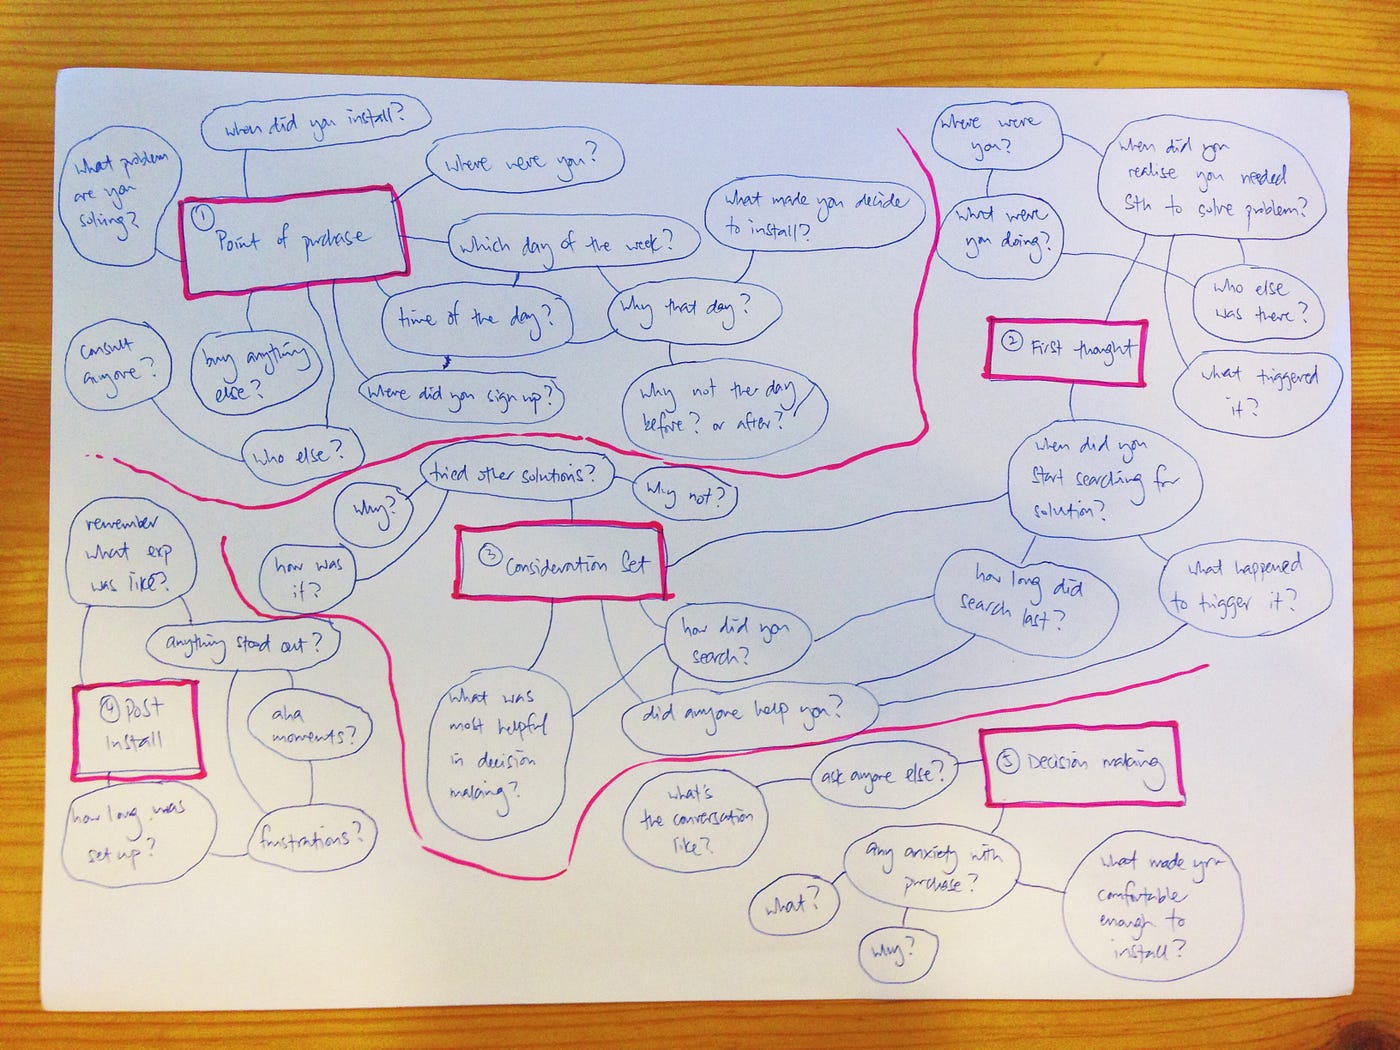 when did you install?
what problem
are you
solving?
where were you?
①
Point of purchase
which day of the week?
what made you decide
to install?
time of the day?
why that day?
consult
anyone?
buy anything
else?
where did you sign up?
why not the day
before? or after?
who else?
where were
you?
when did you
realise you needed
sth to solve problem?
what were
you doing?
who else
was there?
② First thought
what triggered
it?
when did you
start searching for
solution?
how long did
search last?
what happened
to trigger it?
tried other solutions?
why?
why not?
how was
it?
③ Consideration Set
how did you
search?
what was
most helpful
in decision
making?
did anyone help you?
remember
what exp
was like?
anything stood out?
④ Post
Install
aha
moments?
how long was
set up?
frustrations?
⑤ Decision making
ask anyone else?
what's
the conversation
like?
any anxiety with
purchase?
what?
why?
what made you
comfortable
enough to
install?